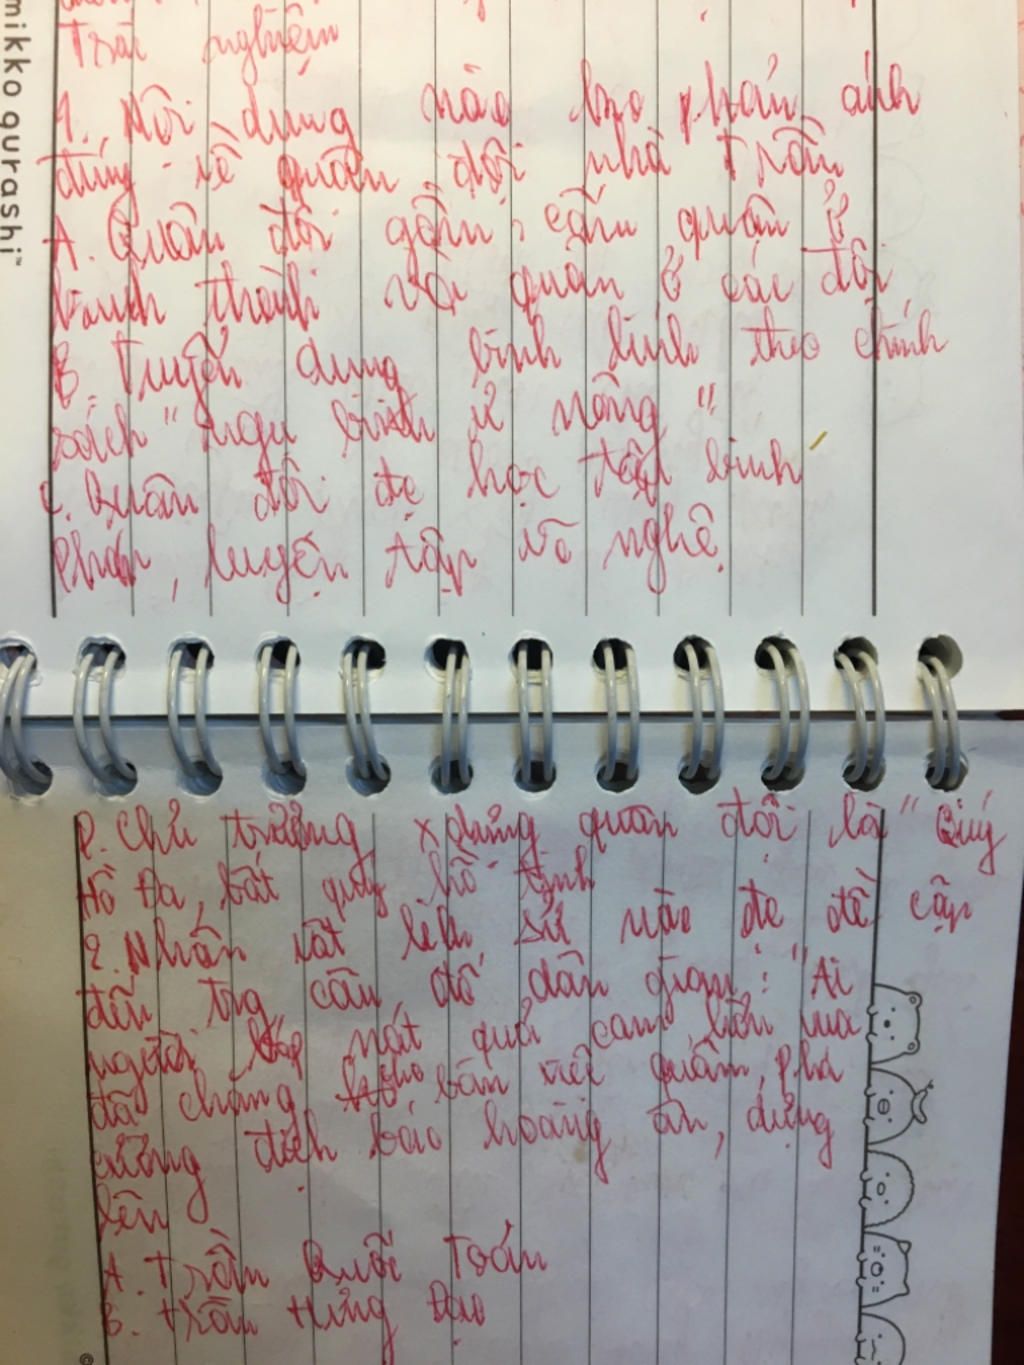 mikko qurashi™
Trải nghiệm
1. Nội dung nào ko phản ánh
đúng về quân đội nhà Trần
A. Quân đội gồm cấm quân ở
kinh thành và quân ở các đội
B. Tuyển dụng binh lính theo chính
sách "ngụ binh ư nông"
C. Quân đội đc học tập binh
pháp, luyện tập võ nghệ
D. Chủ trương xdựng quân đội là "Quý
Hồ Đa, bất quý hồ tinh
2. Nhân vật lịch sử nào đc đề cập
đến trg câu đố dân gian: "Ai
người bóp nát quả cam, hờn vua
đã chẳng cho bàn việc quân, phá
cường địch báo hoàng ân, dựng
lên
A. Trần Quốc Toản
B. Trần Hưng Đạo